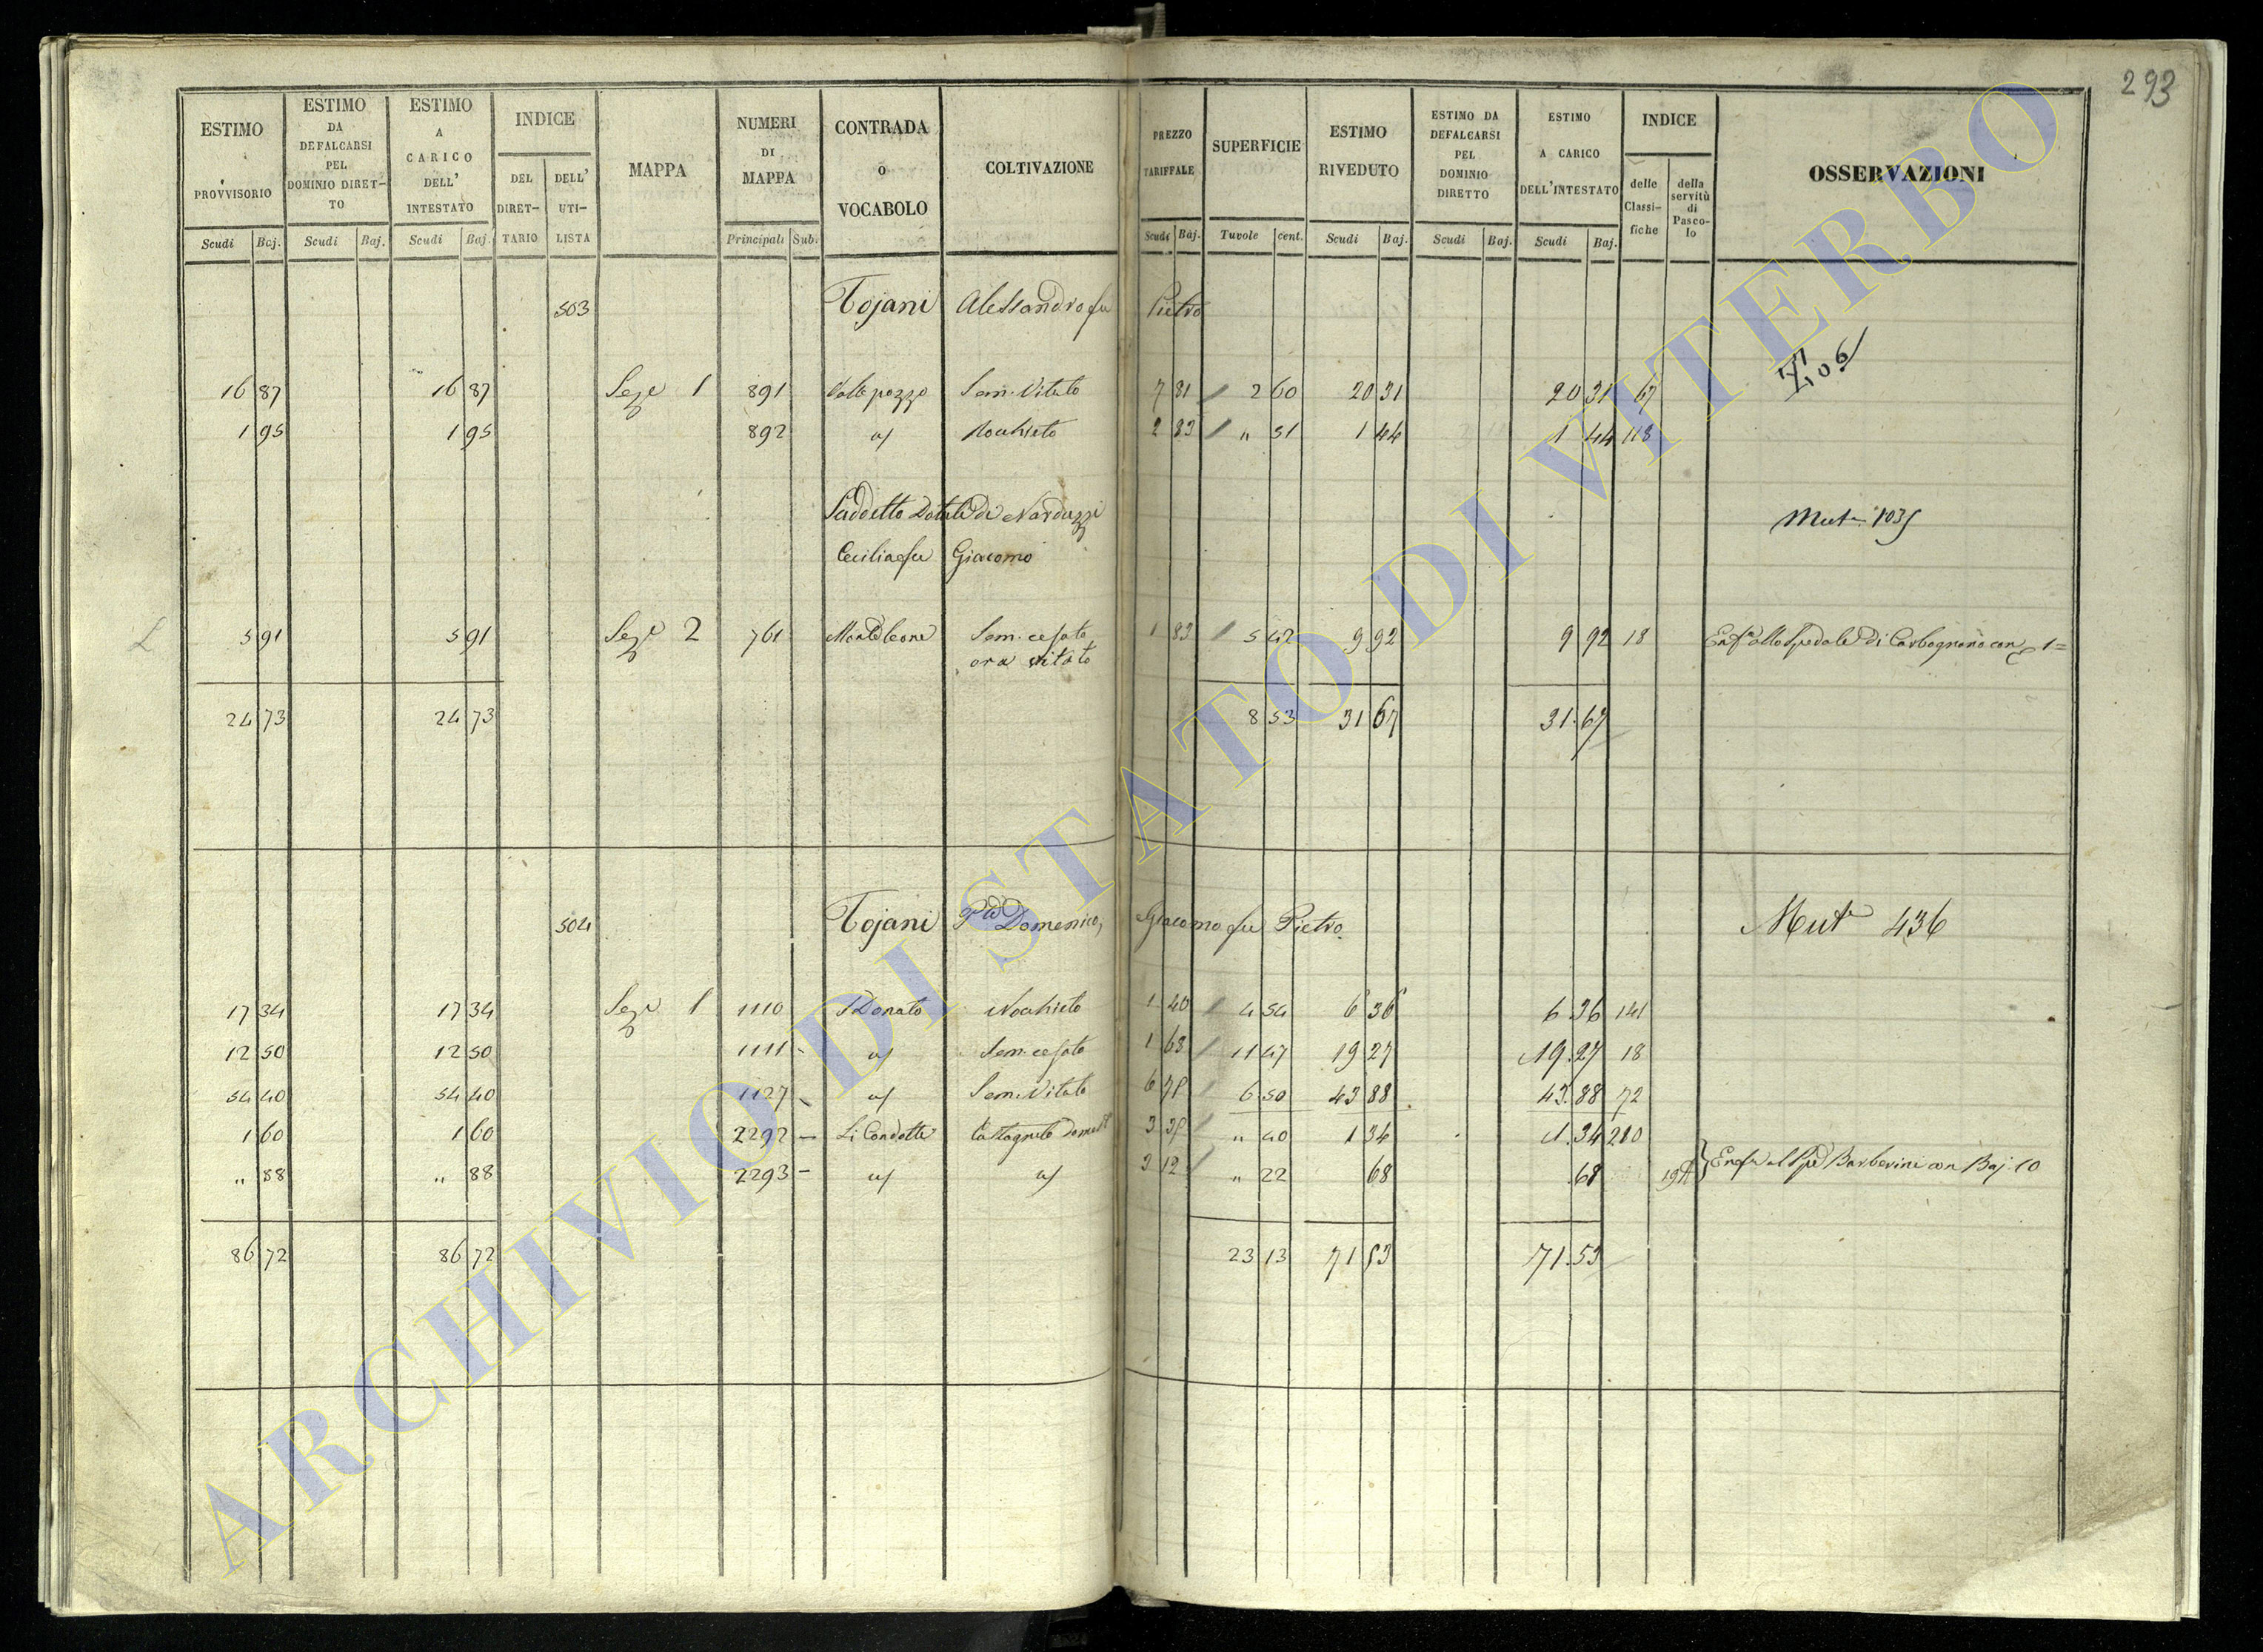 293
ESTIMO PROVVISORIO Scudi Baj. ESTIMO DA DEFALCARSI PEL DOMINIO DIRET- TO Scudi Baj. ESTIMO A CARICO DELL' INTESTATO Scudi Baj. INDICE DEL DIRET- TARIO DELL' UTI- LISTA MAPPA NUMERI DI MAPPA Principali Sub. CONTRADA o VOCABOLO COLTIVAZIONE PREZZO TARIFFALE Scudi Baj. SUPERFICIE Tavole cent. ESTIMO RIVEDUTO Scudi Baj. ESTIMO DA DEFALCARSI PEL DOMINIO DIRETTO Scudi Baj. ESTIMO A CARICO DELL'INTESTATO Scudi Baj. INDICE delle Classi- fiche della servitù di Pasco- lo OSSERVAZIONI
503 Tojani Alessandro fu Pietro
16 87 16 87 Seze 1 891 Valle pozzo Sem. Vitato 7 81 2 60 20 31 20 31 67
1 95 1 95 892 a/ Nocchieto 2 83 " 51 1 44 1 44 118
Suddetto Dotale di Narduzzi Mut 1035
Cecilia fu Giacomo
L 5 91 5 91 Seze 2 761 Monteleone Sem. cesato 1 83 5 42 9 92 9 92 18 Enfa allo Spedale di Carbognano con 1=
ora vitato
24 73 24 73 8 53 31 67 31.67
504 Tojani Domenico, Giacomo fu Pietro Mut 436
17 34 17 34 Seze 1 1110 S Donato Nocchieto 1 40 4 54 6 36 6 36 141
12 50 12 50 1111 a/ Sem. cesato 1 68 11 47 19 27 19.27 18
54 40 54 40 1127 a/ Sem. Vitato 6 75 6 50 43 88 43.88 72
1 60 1 60 2292 Li Condotti Castagneto Domest 3 35 " 40 1 34 1.34 210
" 88 " 88 2293 a/ a/ 3 12 " 22 68 .68 Enfa al Barberini con Baj. 10
86 72 86 72 23 13 71 53 71.53
ARCHIVIO DI STATO DI VITERBO